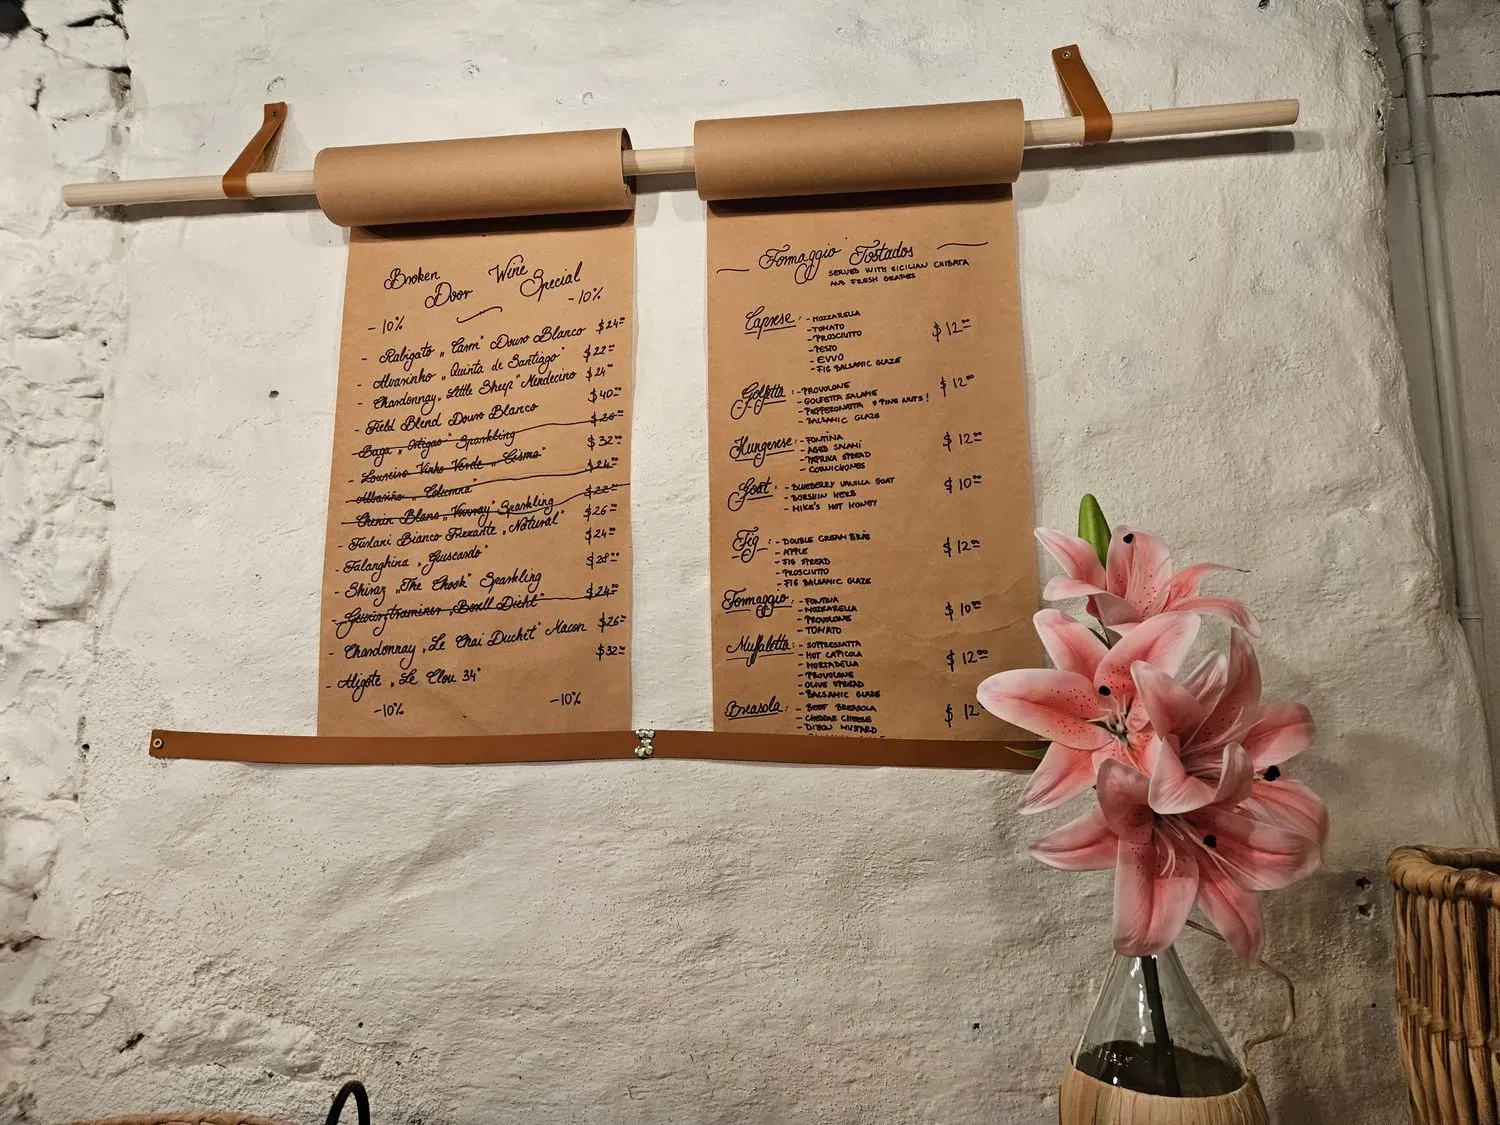 Broken Wine
Door Special
-10%
-10%
- Rabigato „Carm" Douro Blanco $24.00
- Alvarinho „Quinta de Santiago" $22.00
- Chardonnay „Little Sheep" Mendecino $24.00
- Field Blend Douro Blanco $40.00
- Baga „ " Sparkling $26.00
- Loureiro Vinho Verde „Cosmo" $32.00
- Albariño „Columna" $24.00
- Chenin Blanc „Vouvray" Sparkling $22.00
- Furlani Bianco Frizzante „Natural" $26.00
- Falanghina „Guiscardo" $24.00
- Shiraz „The Chook" Sparkling $28.00
- Gewürztraminer „Boxell Dicht" $24.00
- Chardonnay „Le Chai Duchet" Macon $26.00
- Aligote „Le Clou 34" $32.00
-10%
-10%
Formaggio Tostados
SERVED WITH SICILIAN CHIBATA
AND FRESH GRAPES
Caprese: - MOZZARELLA
- TOMATO
- PROSCIUTTO $12.00
- PESTO
- EVVO
- FIG BALSAMIC GLAZE
Golfetta: - PROVOLONE $12.00
- GOLFETTA SALAME
- PEPPERONATTA & PINE NUTS!
- BALSAMIC GLAZE
Hungerese: - FONTINA $12.00
- AGED SALAMI
- PAPRIKA SPREAD
- CORNICHONES
Goat: - BLUEBERRY VANILLA GOAT $10.00
- BORSHIN HERB
- MIKE'S HOT HONEY
Fig: - DOUBLE CREAM BRIE $12.00
- APPLE
- FIG SPREAD
- PROSCIUTTO
- FIG BALSAMIC GLAZE
Formaggio: - FONTINA $10.00
- MOZZARELLA
- PROVOLONE
- TOMATO
Muffaletta: - SOPPRESSATTA $12.00
- HOT CAPICOLA
- MORTADELLA
- PROVOLONE
- OLIVE SPREAD
- BALSAMIC GLAZE
Breasola: - BEEF BREASOLA $12
- CHEDDAR CHEESE
- DIJON MUSTARD